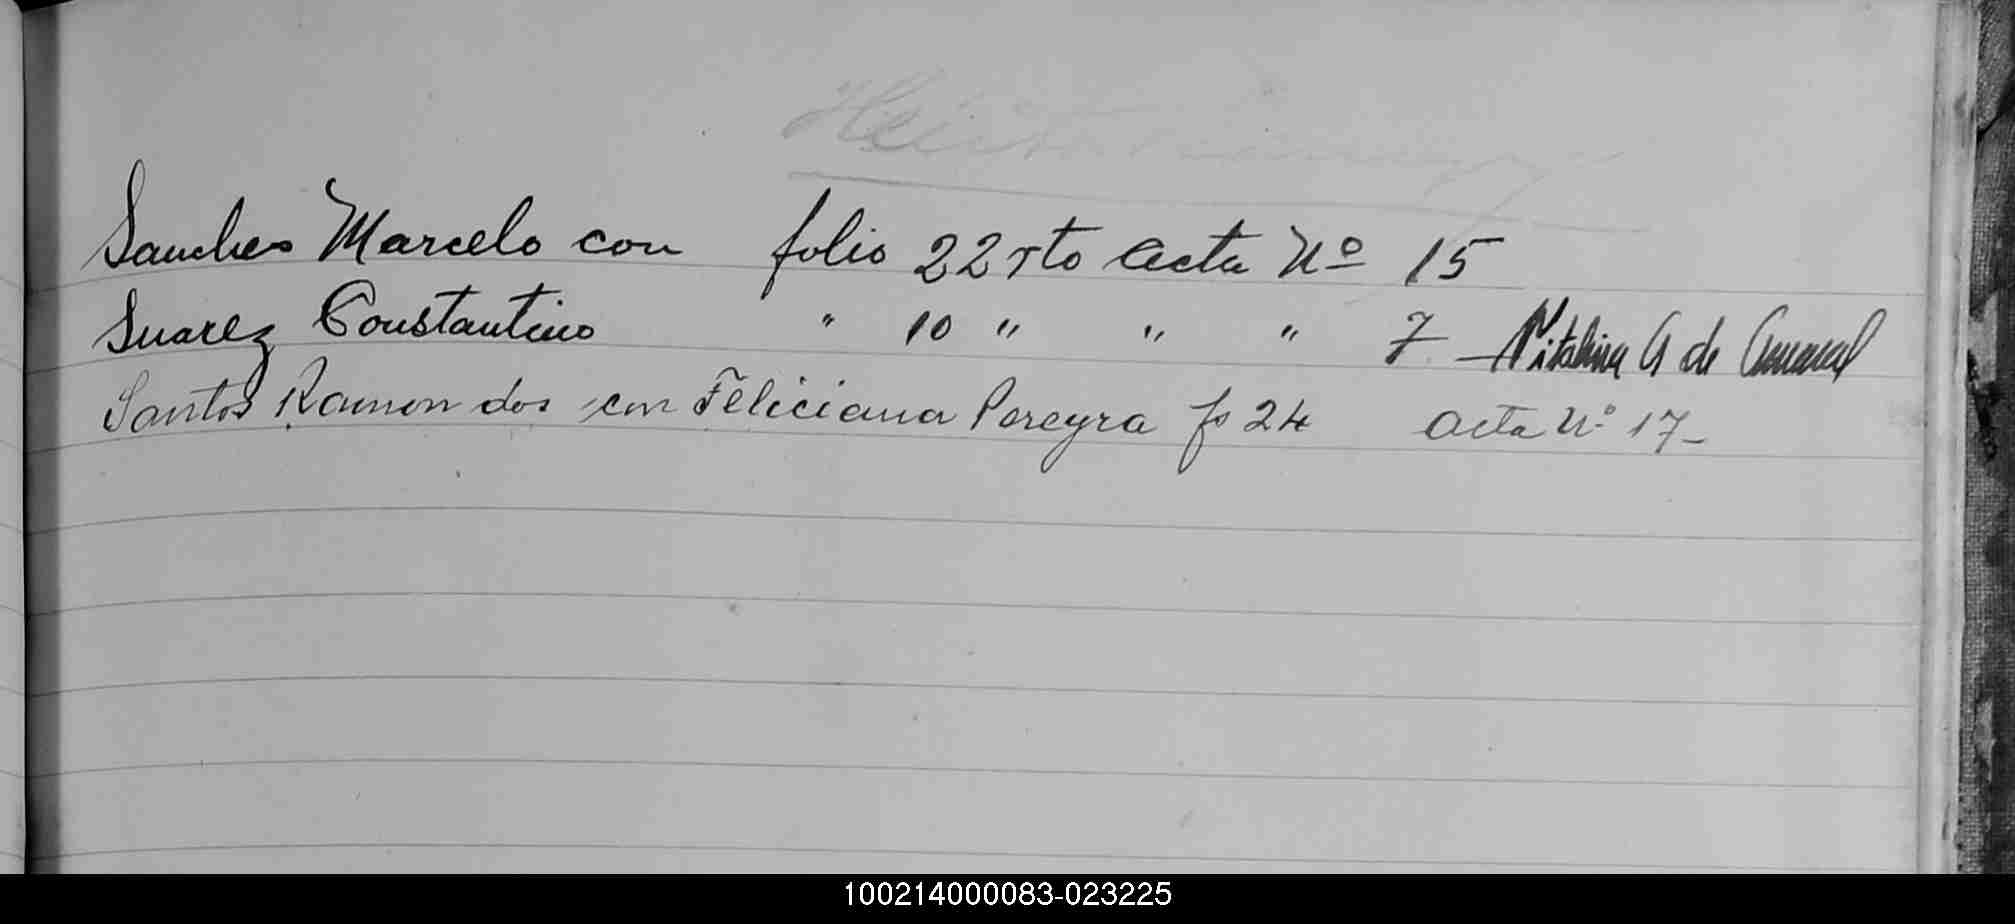 Sanches Marcelo con folio 22 vto Acta Nº 15
Suarez Constantino " 10 " " " 7 - Vitalina A de Amaral
Santos Ramon dos con Feliciana Pereyra fo 24 acta Nº 17-
100214000083-023225